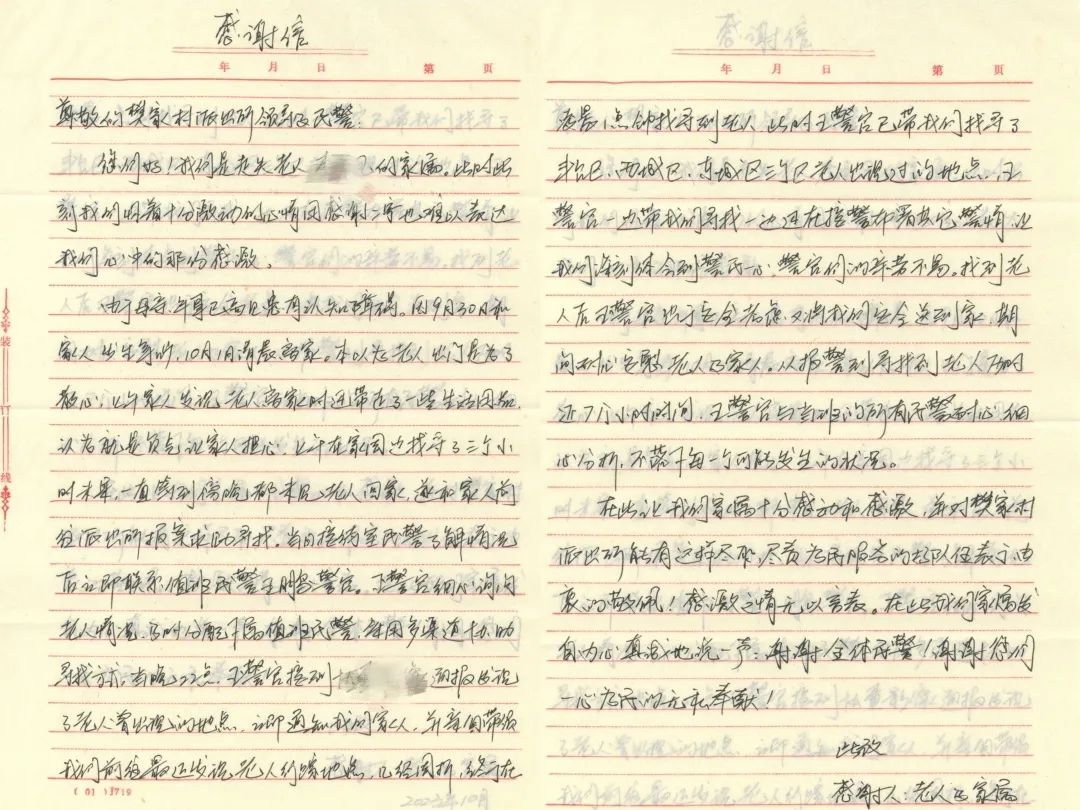 感谢信
年 月 日 第 页
尊敬的樊家村派出所领导及民警:
您们好!我们是走失老人 的家属。此时此
刻我们怀着十分激动的心情因感谢二字也难以表达
我们心中的那份感激。
由于母亲年事已高且患有认知障碍。因9月30日和
家人发生争吵,10月1日清晨离家。本以为老人出门是为了
散心,上午家人发现老人离家时还带走了一些生活用品,
认为就是负气让家人担心,上午在家周边找寻了三个小
时未果,一直等到傍晚都未见老人回家,遂和家人前
往派出所报案求助寻找。当日接待室民警了解情况
后立即联系值班民警王 警官。王警官细心询问
老人情况,及时分配下属值班民警,采用多渠道协助
寻找方式。当晚22点王警官接到 回报发现
了老人曾出现的地点,立即通知我们家人,并亲自带领
我们前往最近发现老人行踪地点,几经周折,终于在
(01)3719
2023年10月
装
订
线
感谢信
年 月 日 第 页
凌晨1点钟找寻到老人,此时王警官已带我们找寻了
丰台区、西城区、东城区三个区老人出现过的地点,王
警官一边带我们寻找一边还在接警部署其它警情,让
我们深刻体会到警民一心,警官们的辛苦不易。找到老
人后王警官出于安全考虑,又将我们安全送到家,期
间耐心安慰老人与家人。从报警到寻找到老人历时
近7个小时时间,王警官与当班的所有民警耐心细
心分析,不落下每一个可能发生的状况。
在此让我们家属十分感动和感激,并对樊家村
派出所能有这样尽职、尽责为民服务的好队伍表示由
衷的敬佩!感激之情无以言表。在此我们家属发
自内心真诚地说一声:谢谢全体民警!谢谢您们
一心为民的无私奉献
此致
感谢人:老人的家属